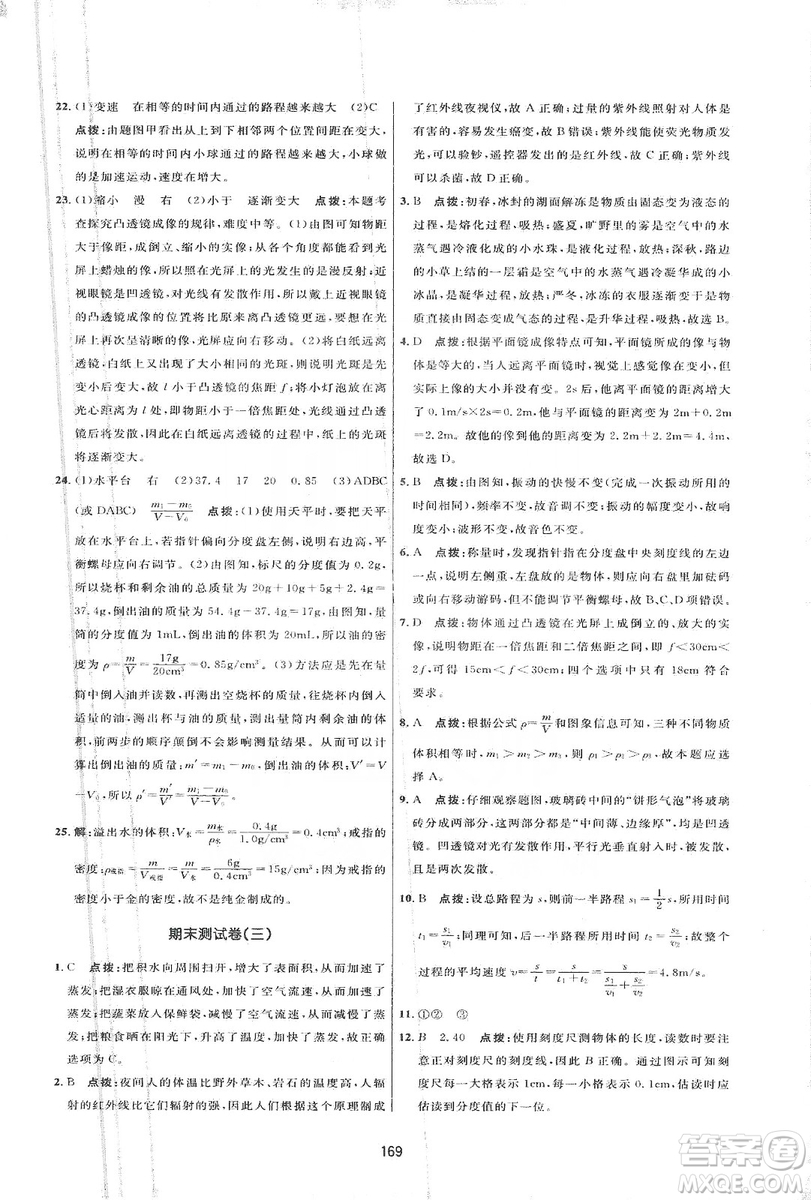 22. (1)变速 在相等的时间内通过的路程越来越大 (2)C
点拨:由题图甲看出从上到下两个位置间距在变大,
说明在相等时间内小球通过的路程越来越大,小球做
的是加速运动,速度在增大。
23. (1)缩小 漫 右 (2)小于 逐渐变大 点拨:本题考
查探究凸透镜成像的规律,难度中等。由图可知物距
大于像距,成倒立、缩小的实像;从各个角度都能看到光
屏上蜡烛的像,所以在光屏上的光发生的是漫反射;近
视眼镜是凹透镜,对光线有发散作用,所以戴上近视眼
镜后的凸透镜成像的位置将比原来离凸透镜更远,要在
光屏上再次呈清晰的像,光屏应向右移动。(2)将白纸远离
透镜,白纸上的光斑逐渐变小,说明白纸上的光斑,还没有
会聚成一点,故 l 小于凸透镜的焦距 f;将小灯泡放在离
光心距离为 l 处,即物距小于一倍焦距,光线通过凸透
镜后将发散,所以在白纸远离透镜的过程中,白纸上的光斑
逐渐变大。
24. (1)水平台 右 (2)37.4 17 20 0.85 (3)ADBC
(或 DABC) (m₁−m₀)/(V−V₀) 点拨:(1)使用天平时,要把天平
放在水平台上,若指针偏向分度盘左侧,说明右边高,平
衡螺母应向右调节。(2)由图知,砝码的质量加游码的示数,
所以烧杯和剩余油的总质量为 20g+10g+5g+2.4g=
37.4g,倒出油的质量为 54.4g−37.4g=17g,由图知,量
筒的分度值为 1mL,倒出油的体积为 20mL,所以油的密
度为 ρ=m/V=17g/20cm³=0.85g/cm³。(3)方法应是先向量
筒中倒入油并读数,再测出空烧杯的质量,往烧杯内倒入
适量的油,测出杯与油的质量,读出量筒内剩余油的体
积,前两步的顺序颠倒不影响测量结果。由此可以计
算出倒出油的质量为 m′=m₁−m₀,倒出油的体积为 V′=V
−V₀,所以 ρ′=m′/V′=(m₁−m₀)/(V−V₀)。
25. 解:溢出水的体积:V水=m水/ρ水=0.4g/1.0g/cm³=0.4cm³;戒指的
密度:ρ戒指=m/V戒指=6g/0.4cm³=15g/cm³;因为戒指的密
度小于金的密度,故不是纯金制成的。
期末测试卷(三)
1. C 点拨:把积水向周围扫开,增大了表面积,从而加速了
蒸发;把湿衣服晾在通风处,加快了空气流速,加快了
蒸发;把蔬菜放入保鲜袋,减小了空气流速,减慢了蒸
发;把粮食晒在阳光下,升高了温度,加快了蒸发。故正确
选项为 C。
2. B 点拨:夜间人的体温比野外草木、岩石的温度高,人辐
射的红外线比它们辐射的强,因此,人们根据这个原理制成
了红外线夜视仪,故 A 正确;过量的紫外线照射对人体是
有害的,容易发生癌变,故 B 错误;紫外线能使荧光物质发
光,可以验钞,遥控器发出的是红外线,故 C 正确;紫外线
可以杀菌,故 D 正确。
3. B 点拨:初春,冰封的湖面解冻是物质由固态变为液态的
过程,是熔化过程,吸热;盛夏,旷野里的雾是空气中的水
蒸气遇冷形成的小水珠,是液化过程,放热;深秋,路边
的小草上结的一层霜是空气中的水蒸气遇冷凝华成的小
冰晶,是凝华过程,放热;严冬,冰冻的衣服逐渐变干,物质
直接由固态变成气态的过程,是升华过程,吸热。故选 B。
4. D 点拨:根据平面镜成像特点可知,平面镜所成的像与物
体是等大的,当人远离平面镜时,视觉上感觉像在变小,但
实际上像的大小是不变的。2s后,人与平面镜的距离增大
了 0.1m/s×2s=0.2m,他与平面镜的距离变为 2m+0.2m
=2.2m。故他的像到他的距离变为 2.2m+2.2m=4.4m,
故选 D。
5. B 点拨:由图知,振动的快慢不变(完成一次振动所用的
时间相同),频率不变,故音调不变;振动的幅度变小,故响
度变小;波形不变,故音色不变。
6. A 点拨:称量时,发现指针指在分度盘中央刻度线的左边
一点,说明左侧重,左盘放的是物体,则说明应加砝码
或向右移动游码,而不能调节平衡螺母,故B、C、D项错误。
7. D 点拨:物体通过凸透镜在光屏上成倒立、放大的实像,
说明物距在一倍焦距和二倍焦距之间,即 f<30cm<
2f,可得 15cm<f<30cm,四个选项中只有 18cm 符合
要求。
8. A 点拨:根据公式 ρ=m/V 和图象信息可知,三种不同物质
体积相等时,m₁>m₂>m₃,所以 ρ₁>ρ₂>ρ₃,故本题应选
择 A。
9. A 点拨:仔细观察题图,玻璃砖中间的“饼形气泡”将玻璃
砖分成两部分,这两部分都是“中间薄、边缘厚”,均是凹透
镜。凹透镜对光有发散作用,平行光垂直射入时,两次均
是两次发散。
10. B 点拨:设总路程为 s,则前一半路程 s₁=1/2 s,所用时间
t₁=s₁/v₁;同理可知,后一半路程所用时间 t₂=s₂/v₂,故全
过程的平均速度 v=s/t=s/(s₁/v₁+s₂/v₂)=4.8m/s。
11. ①② ③
12. B 2.40 点拨:使用刻度尺测物体的长度,读数时要注
意正对刻度尺的刻线,因此 B 正确;读数时要注
意每一大格表示 1cm,每一小格表示 0.1cm,且应
估读到分度值的下一位。
169
答案圈
MXQE.COM